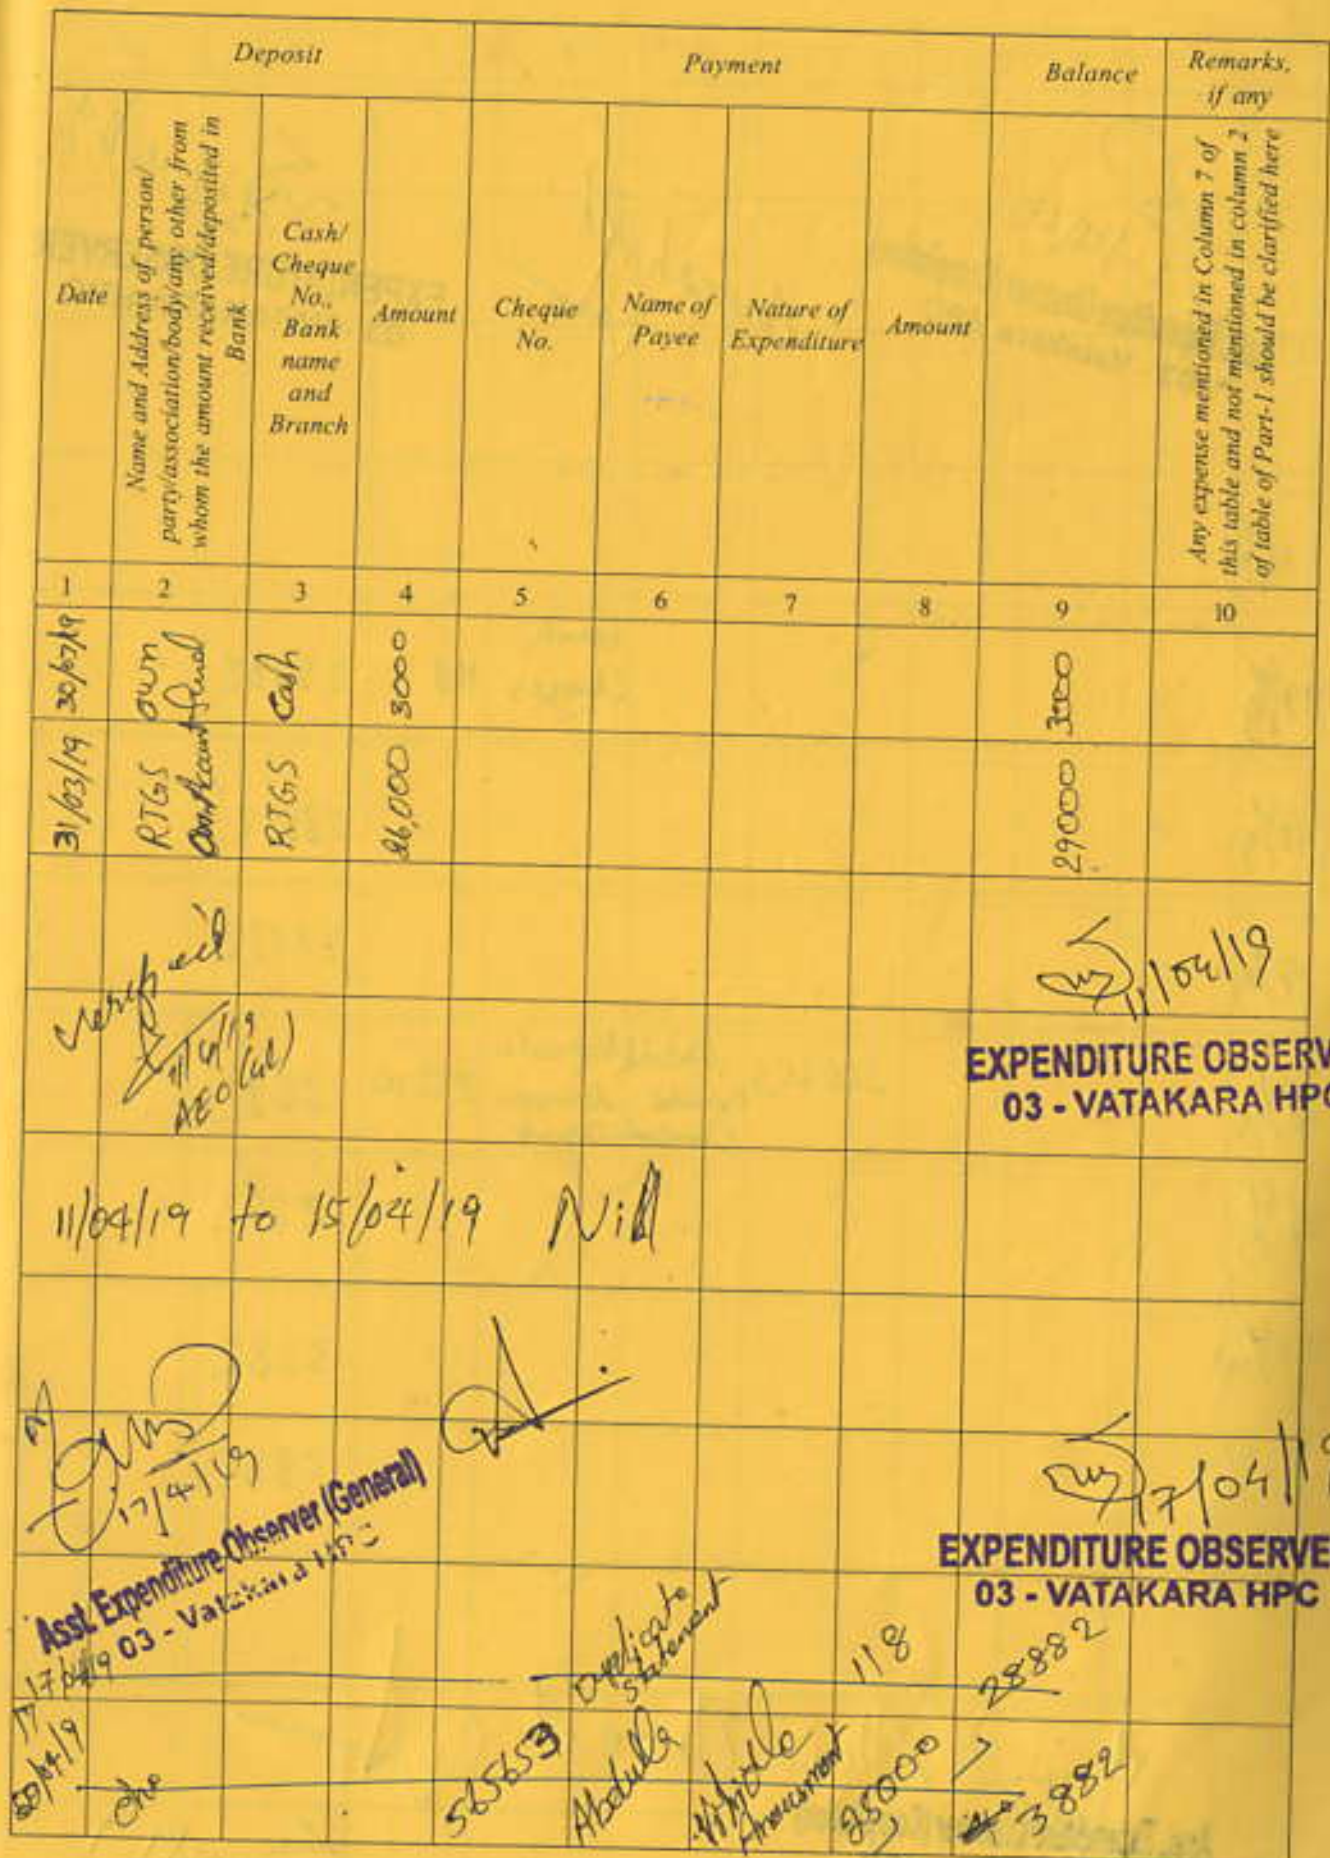 Deposit
Payment
Balance
Remarks,
if any
Date
Name and Address of person/
party/association/body/any other from
whom the amount received/deposited in
Bank
Cash/
Cheque
No.,
Bank
name
and
Branch
Amount
Cheque
No.
Name of
Payee
Nature of
Expenditure
Amount
Any expense mentioned in Column 7 of
this table and not mentioned in column 2
of table of Part-1 should be clarified here
1 2 3 4 5 6 7 8 9 10
own fund Cash 3000 3000
31/03/19 RTGS RTGS 26,000 29000
Verified
AEO
11/04/19
EXPENDITURE OBSERV
03 - VATAKARA HPC
11/04/19 to 15/04/19 Nill
17/4/19
Asst. Expenditure Observer (General)
03 - Vatakara HPC
17/04/19
EXPENDITURE OBSERVE
03 - VATAKARA HPC
17/04/19 Duplicate Statement 118 28882
Che 565653 Abdulla Vehicle 25000 3882